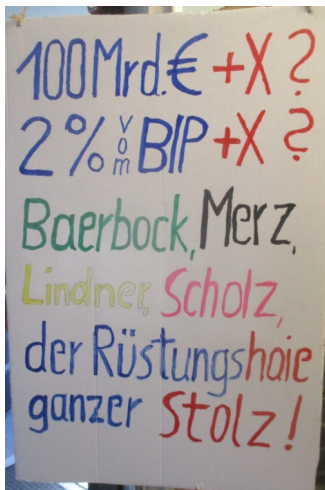 100Mrd.€ +X ?
2% vom BIP +X ?
Baerbock, Merz,
Lindner, Scholz,
der Rüstungshaie
ganzer Stolz!